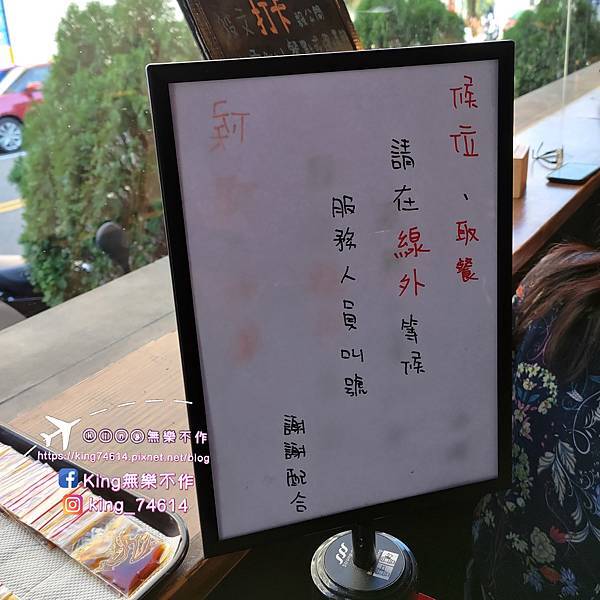 候位、取餐
請在線外等候
服務人員叫號
謝謝配合
打卡
King無樂不作
https://king74614.pixnet.net/blog
King無樂不作
king_74614